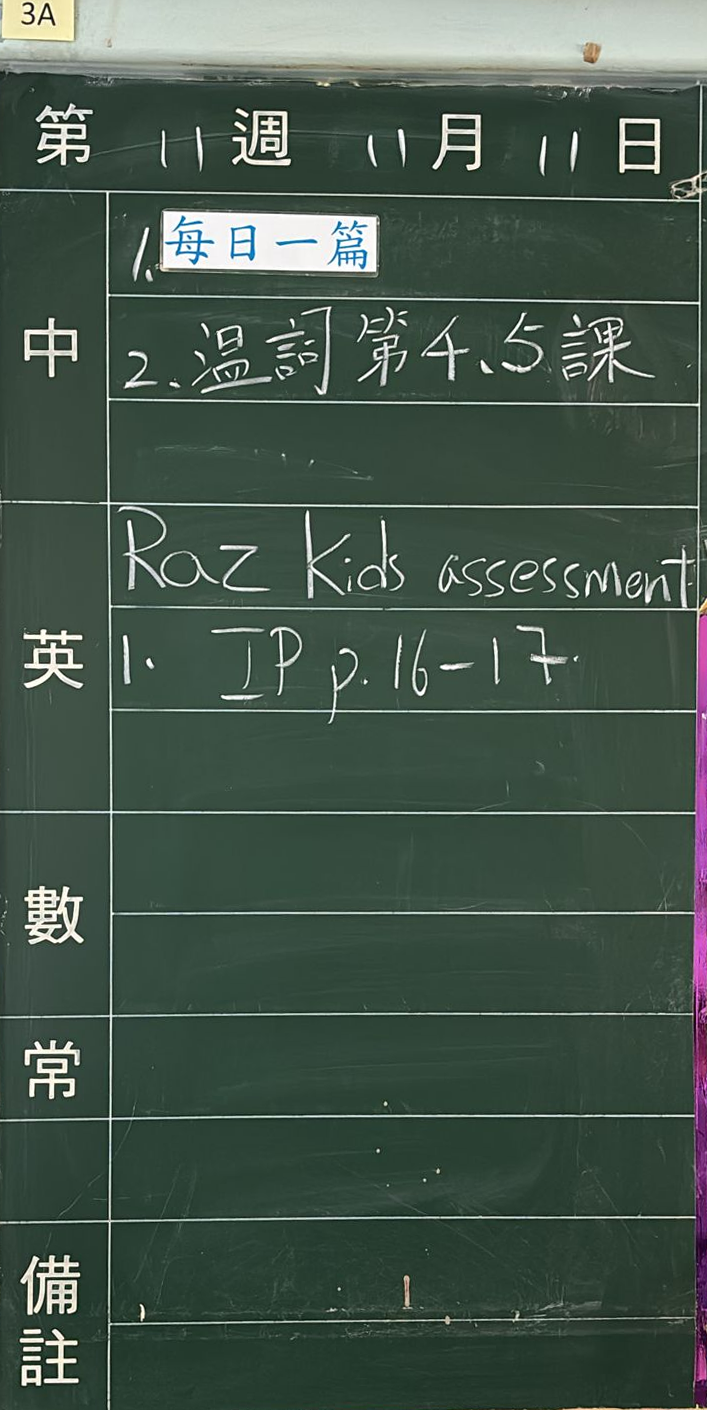 3A
第 11 週 11 月 11 日
中
1. 每日一篇
2. 温詞第4、5課
英
Raz Kids assessment
1. IP p.16-17.
數
常
備註